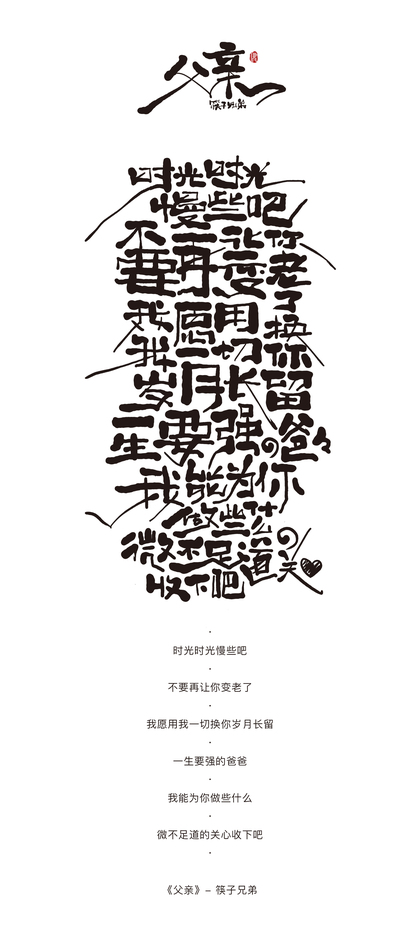 父亲
筷子兄弟
时光时光
慢些吧
不要再让你
变老了
我愿用我
一切换你
岁月长留
一生要强的爸爸
我能为你
做些什么
微不足道的关♥
收下吧
时光时光慢些吧
不要再让你变老了
我愿用我一切换你岁月长留
一生要强的爸爸
我能为你做些什么
微不足道的关心收下吧
《父亲》– 筷子兄弟